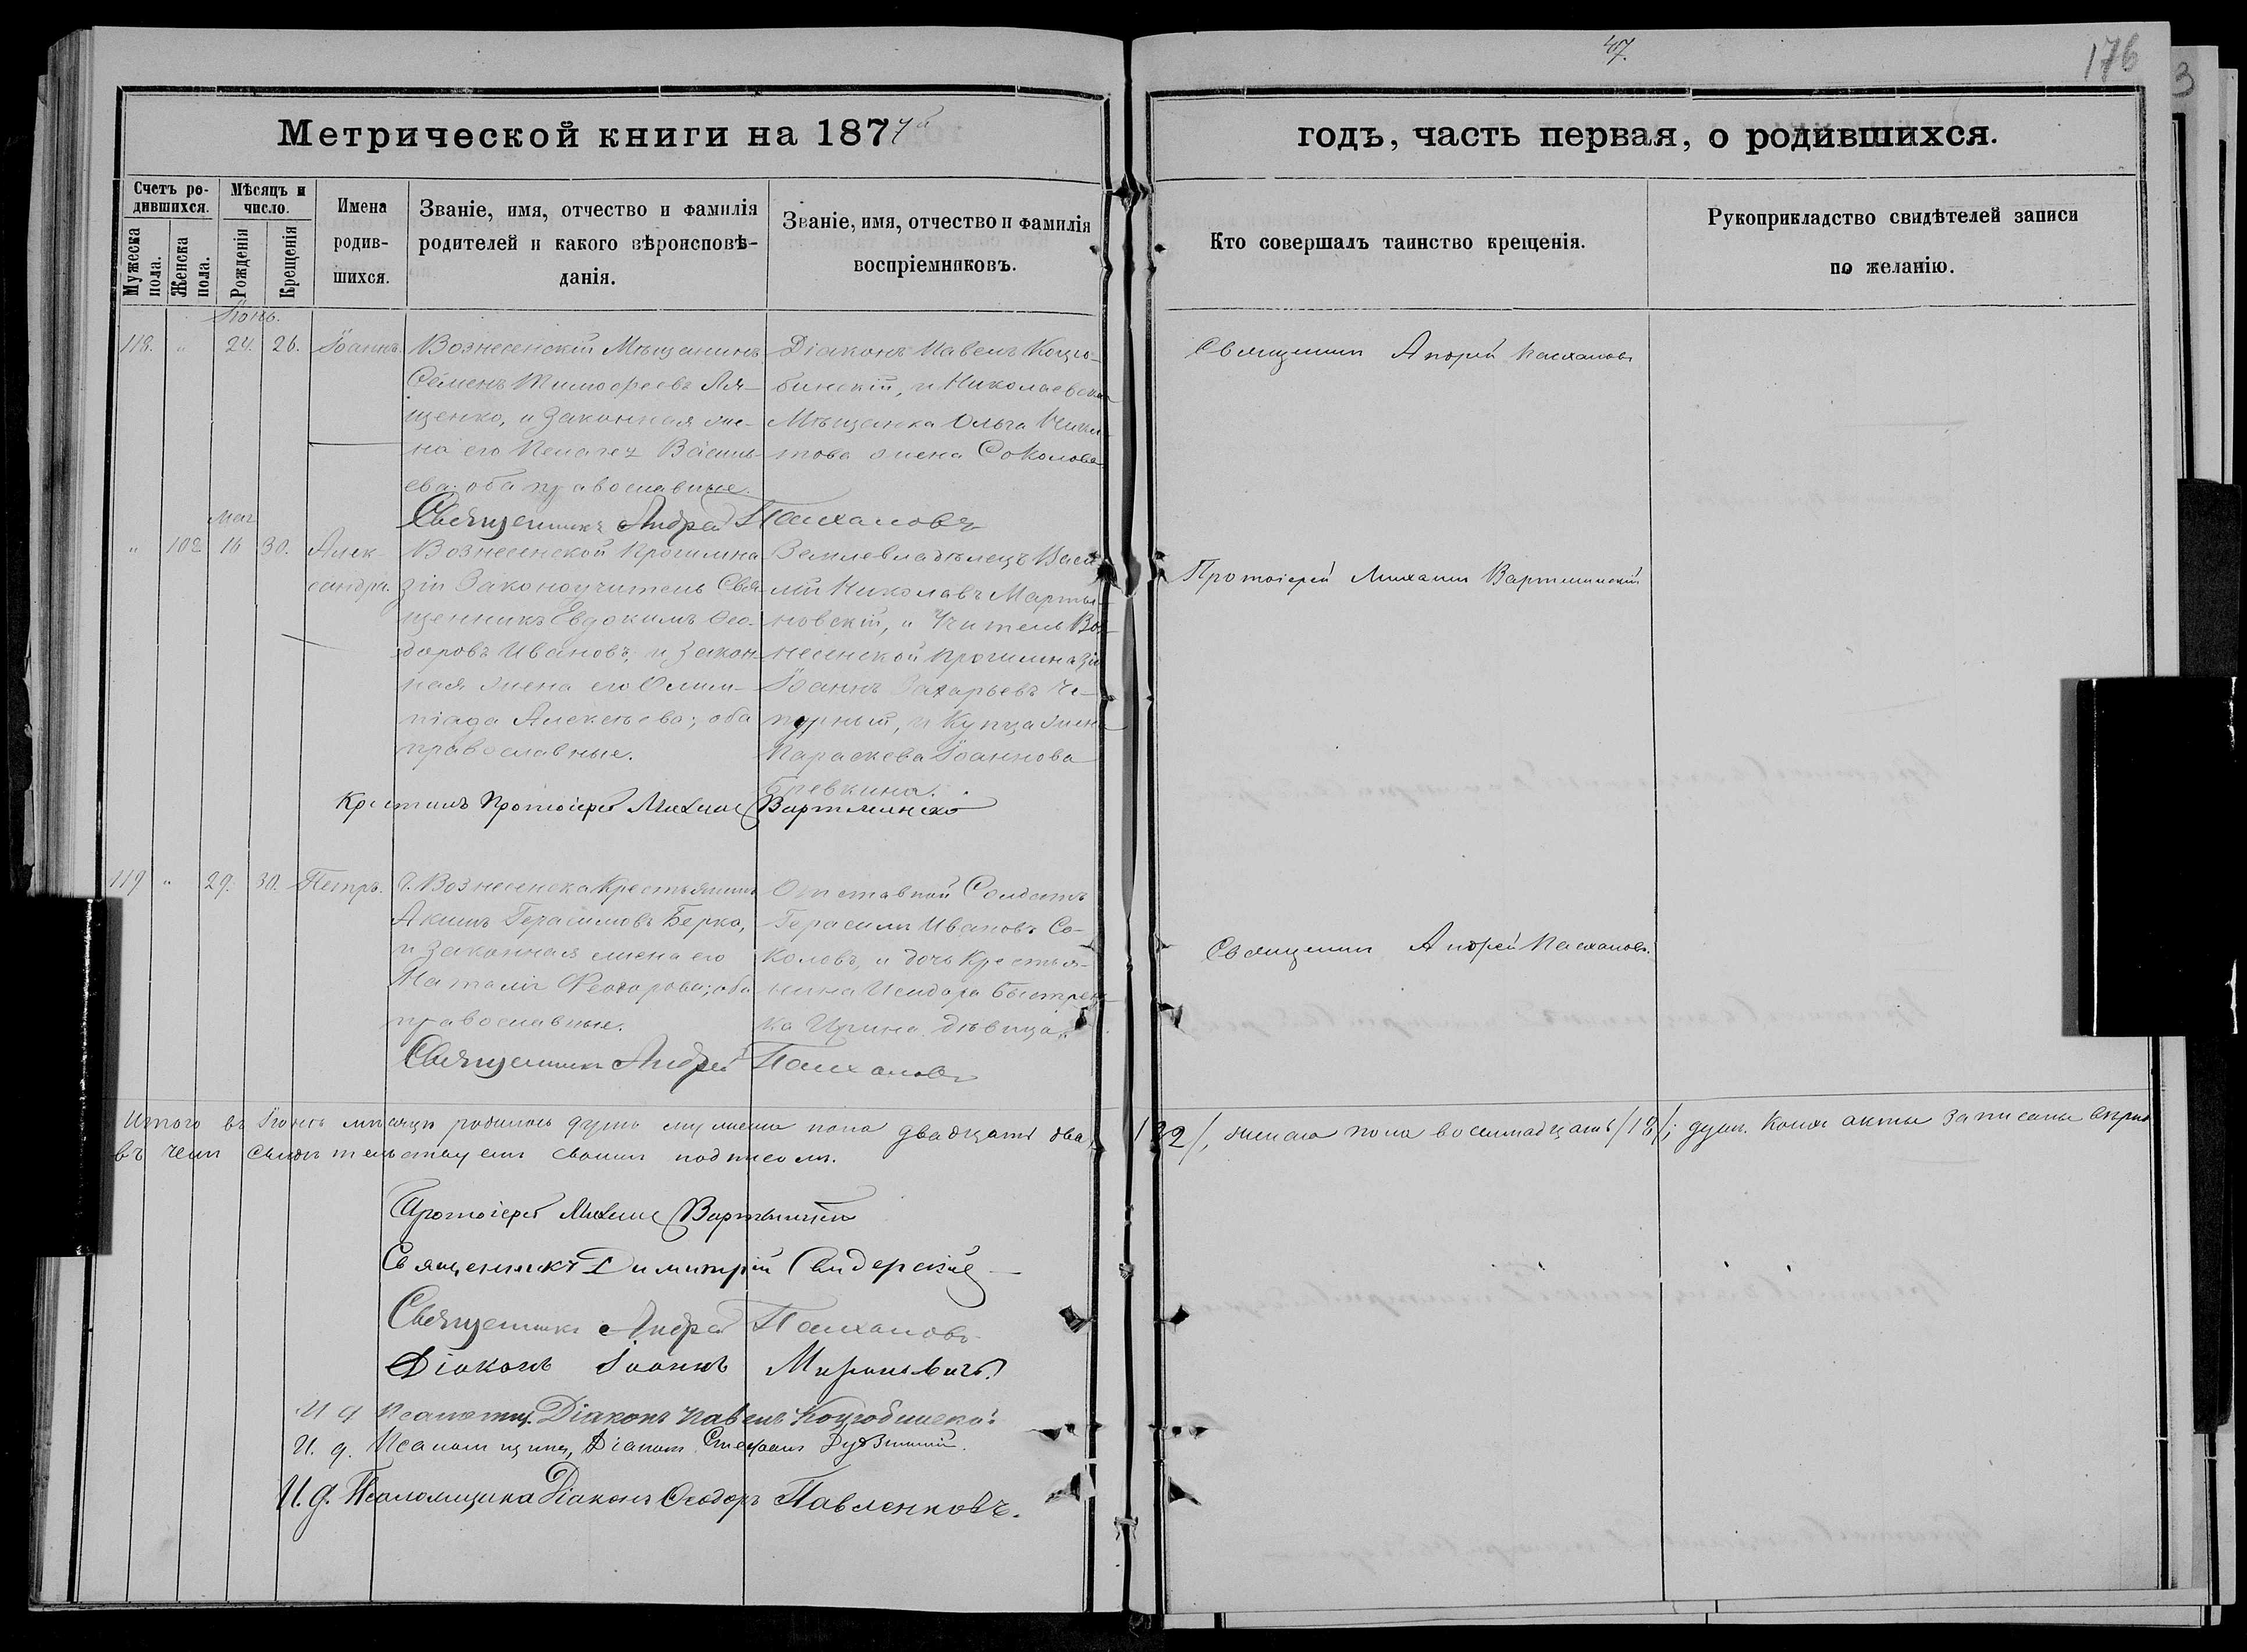 47.
176
3
Метрической книги на 1877й
годъ, часть первая, о родившихся.
Счетъ ро-
дившихся.
Мужеска
пола.
Женска
пола.
Мѣсяцъ и
число.
Рожденія
Крещенія
Имена
родив-
шихся.
Званіе, имя, отчество и фамилія
родителей и какого вѣроисповѣ-
данія.
Званіе, имя, отчество и фамилія
воспріемниковъ.
Кто совершалъ таинство крещенія.
Рукоприкладство свидѣтелей записи
по желанію.
Іюнь.
118. " 24. 26. Іоаннъ.
Вознесенскій Мѣщанинъ
Семенъ Тимофеевъ Ля-
щенко, и законная же-
на его Пелагея Василь-
ева: оба православные.
Діаконъ Павелъ Коцю-
бинскій, и Николаевская
Мѣщанка Ольга Ники-
това жена Соколова
Священник Андрей
Священникъ Андрей
Май
" 102 16 30. Алек-
сандра.
Вознесенской Прогимна-
зіи Законоучитель Свя-
щенникъ Евдокимъ Ѳео-
доровъ Ивановъ, и закон-
ная жена его Олим-
піада Алексѣева; оба
православные.
Землевладѣлецъ Васи-
лій Николаевъ Марты-
новскій, и Учитель Воз-
несенской Прогимназіи
Іоаннъ Захарьевъ Че-
пурный, и Купца жена
Параскева Іоаннова
Бревкина.
Протоіерей Михаил
Крестилъ Протоіерей Михаил
119 " 29. 30. Петръ.
г. Вознесенска Крестьянинъ
Акимъ Герасимовъ Берко,
и законная жена его
Наталія Ѳеодорова; оба
православные.
Отставной Солдатъ
Герасимъ Ивановъ Со-
коловъ, и дочь Крестья-
нина Исидора Быстрен-
ка Ирина дѣвица.
Священник Андрей
Священникъ Андрей
Итого въ Іюнѣ мѣсяцѣ родилось душъ мужеска пола двадцать два /22/, женска пола восемнадцать /18/; душ. Коихъ акты записаны вѣрно
въ чемъ свидѣтельствуемъ своимъ подписомъ.
Протоіерей Михаил
Священникъ Димитрій Сандерскій
Священникъ Андрей
Діаконъ Іоаннъ
И д Псаломщ. Діаконъ Павелъ Коцюбинскій
И. д. Псаломщика, Діаконъ Стефанъ
И. д. Псаломщика Діаконъ Ѳеодоръ Павленковъ.